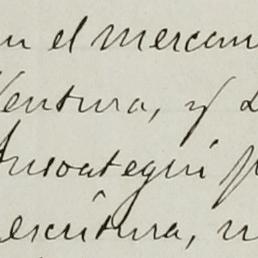 en el mercan
Ventura, y D
Ansoategui p
escritura, n